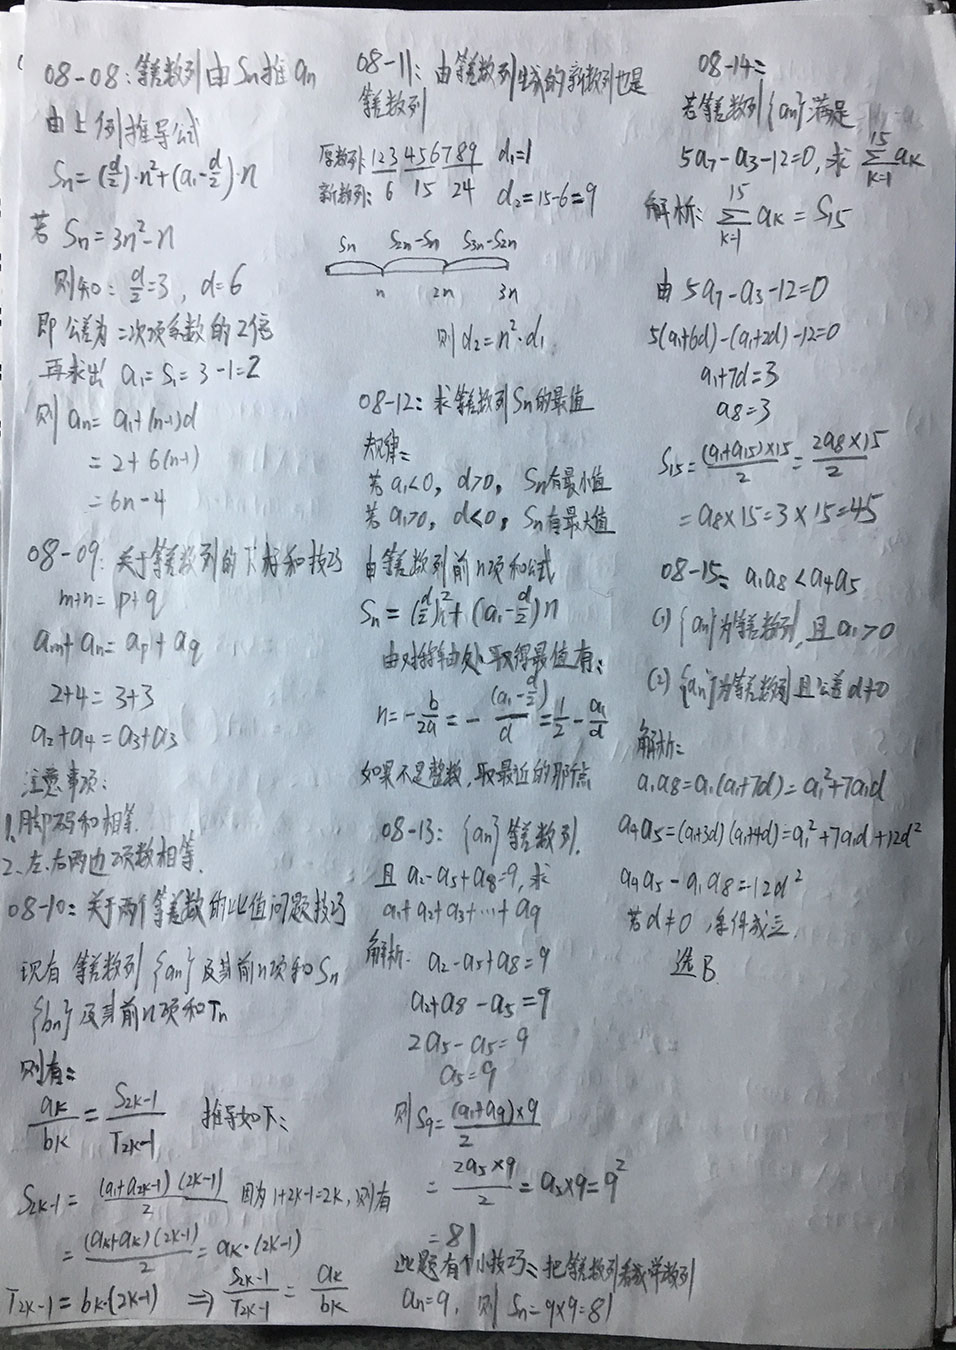 08-08: 等差数列由Sn推an
由上例推导公式
Sn=(d/2)·n²+(a1-d/2)·n
若 Sn=3n²-n
则知: d/2=3, d=6
即公差为二次项系数的2倍
再求出 a1=S1=3-1=2
则 an=a1+(n-1)d
=2+6(n-1)
=6n-4
08-09: 关于等差数列的下标和技巧
m+n=p+q
am+an=ap+aq
2+4=3+3
a2+a4=a3+a3
注意事项:
1. 脚码和相等.
2. 左、右两边项数相等.
08-10: 关于两个等差数的比值问题技巧
现有 等差数列{an}及其前n项和Sn
{bn}及其前n项和Tn
则有:
ak/bk=S2k-1/T2k-1 推导如下:
S2k-1=(a1+a2k-1)(2k-1)/2 因为1+2k-1=2k, 则有
=(ak+ak)(2k-1)/2=ak·(2k-1)
T2k-1=bk·(2k-1) ⇒ S2k-1/T2k-1=ak/bk
08-11: 由等差数列生成的新数列也是
等差数列
原数列: 123 456 789 d1=1
新数列: 6 15 24 d2=15-6=9
Sn S2n-Sn S3n-S2n
n 2n 3n
则 d2=n²·d1
08-12: 求等差数列Sn的最值
规律:
若a1<0, d>0, Sn有最小值
若a1>0, d<0, Sn有最大值
由等差数列前n项和公式
Sn=(d/2)n²+(a1-d/2)n
由对称轴处取得最值有:
n=-b/2a=-(a1-d/2)/d=1/2-a1/d
如果不是整数,取最近的那个点
08-13: {an}等差数列,
且a2-a5+a8=9, 求
a1+a2+a3+…+a9
解析: a2-a5+a8=9
a2+a8-a5=9
2a5-a5=9
a5=9
则S9=(a1+a9)×9/2
=2a5×9/2=a5×9=9²
=81
此题有个小技巧: 把等差数列看成常数列
an=9, 则Sn=9×9=81
08-14:
若等差数列{an}满足
5a7-a3-12=0, 求 15∑k=1 ak
解析: 15∑k=1 ak=S15
由5a7-a3-12=0
5(a1+6d)-(a1+2d)-12=0
a1+7d=3
a8=3
S15=(a1+a15)×15/2=2a8×15/2
=a8×15=3×15=45
08-15: a1a8<a4a5
(1) {an}为等差数列, 且a1>0
(2) {an}为等差数列且公差d≠0
解析:
a1a8=a1(a1+7d)=a1²+7a1d
a4a5=(a1+3d)(a1+4d)=a1²+7a1d+12d²
a4a5-a1a8=12d²
若d≠0, 条件成立.
选B